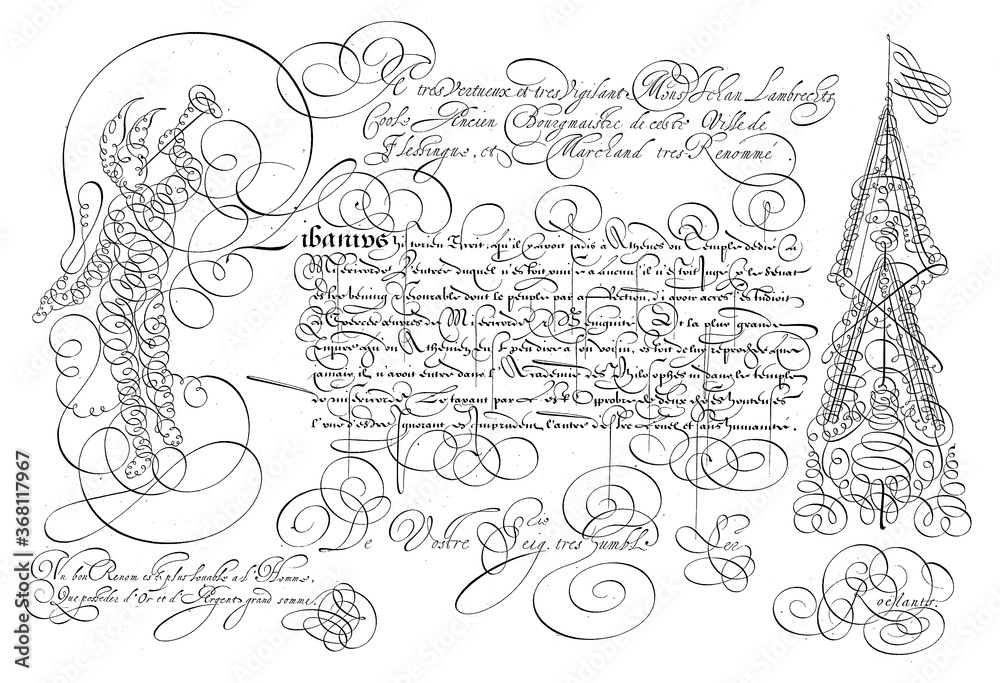 A tres Vertueux et tres Vigilant Mons.r Jehan Lambrechts
Coole Ancien Bourgmaistre de ceste Ville de
Flessingue, et Marchand tres Renommé.
Libanius historien Escrit, qu'il y avoit jadis a Athenes un Temple dedié a
Misericorde l'entree duquel n'estoit
bening & secourable dont le peuple par affection, d'y avoir acces s'estudioit
œuvres de Misericorde & Benignite. Et la plus grande
injure qu'un Athenien eust peu dire a son voisin, estoit de luy reprocher que
jamais il n'avoit entré dans l'Academie des Philosophes ni dans le temple
de misericorde Le taxant par Opprobre de deux choses honteuses
l'une d'estre ignorant et imprudent l'autre d'estre cruel et sans humanité.
De Vostre Seig.rie tres humble Ser.
Un bon Renom est plus louable a l'Homme,
Que posseder d'Or et d'Argent grand somme.
Roelants.
Adobe Stock | #368117967
Adobe Stock